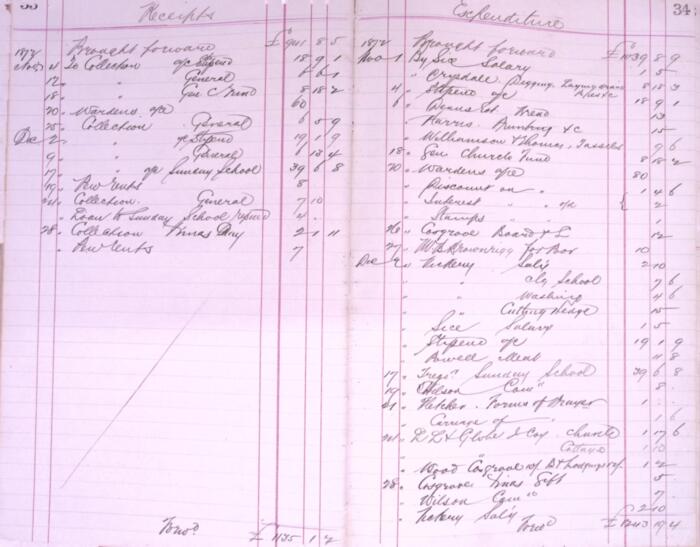 33
Receipts
1872 Brought forward £ 941 8 5
Nov 4 To Collection o/c Stipend 18 9 1
12 " General 8 6 1
18 " Gen C Fund 8 18 2
20 " Wardens o/c 60
25 " Collection General 6 5 9
Dec 2 " " o/c Stipend 19 1 9
9 " " General 1 13 4
17 " " o/c Sunday School 39 6 8
19 " Pew rents 8
24 " Collection General 7 10
" Loan to Sunday School repaid 4
28 " Collection Xmas Day 2 1 11
" Pew rents 7
Forwd £ 1135 1 2
34
Expenditure
1872 Brought forward £ 1039 8 9
Nov 1 By Sice Salary 1 5
" Drysdale Pegging, Laying 8 18 3
4 " Stipend o/c 18 9 1
6 " 13
" Harris Printing &c 15
" Williamson & Thomas, Tassels 7 6
18 " Gen Church Fund 8 18 2
20 " Wardens o/c 80
" Discount on " 1 4 6
" Interest " " o/c 2
" Stamps " " 1
26 " Cosgrove Board & L 12
27 " W B Brownrigg for Poor 10
Dec 2 " Vickery Saly 2 10
" " Clg School 7 6
" " Washing 4 6
" " Cutting Hedge 15
" Sice Salary 1 5
" Stipend o/c 19 1 9
" Powell Meat 11 8
17 " Tregs Sunday School 39 6 8
19 " Wilson Comn 8
21 " Fletcher Forms of Prayer 1
" Carriage of " 1 6
24 " D L L & Globe I Coy Church 1 17 6
Cottage 1 10
" Wood Cosgrove 1 2
28 " Cosgrove Xmas Gift 5
" Wilson Comn 7
" Vickery Saly 2 10
Forwd £ 1243 19 4